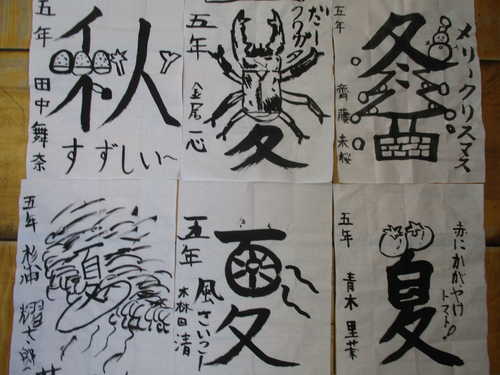 五年
田中舞奈
秋
すずしい〜
五年
金尾一心
夏
五年
齋藤未桜
冬
メリークリスマス
五年
杉浦
夏
五年
森田清
風さいこー
夏
五年
青木里菜
夏
赤にかがやけ
トマト!